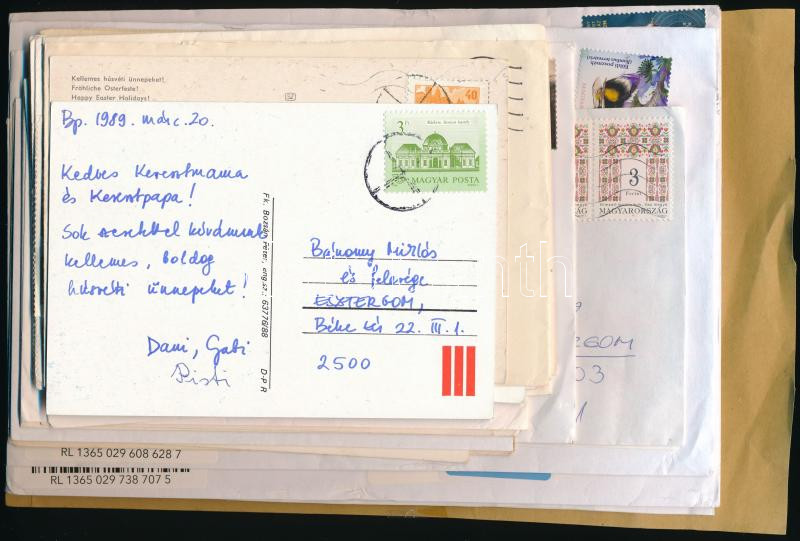 Kellemes húsvéti ünnepeket!
Fröhliche Osterfeste!
Happy Easter Holidays!
40
Földi poszméh
(Bombus terrestris)
Bp. 1989. márc. 20.
3 Ft
MAGYAR POSTA
Kedves Keresztmama
és Keresztpapa!
Sok szeretettel kívánunk
kellemes, boldog
húsvéti ünnepeket!
Dani, Gabi
Pisti
Fk. Bozsán Péter, eng.sz.: 63776/88 D-P-R
Miklós
és felesége
ESZTERGOM,
Béke tér 22. III. 1.
2500
3
Forint
MAGYARORSZÁG
RGOM
03
1
RL 1365 029 608 628 7
RL 1365 029 738 707 5